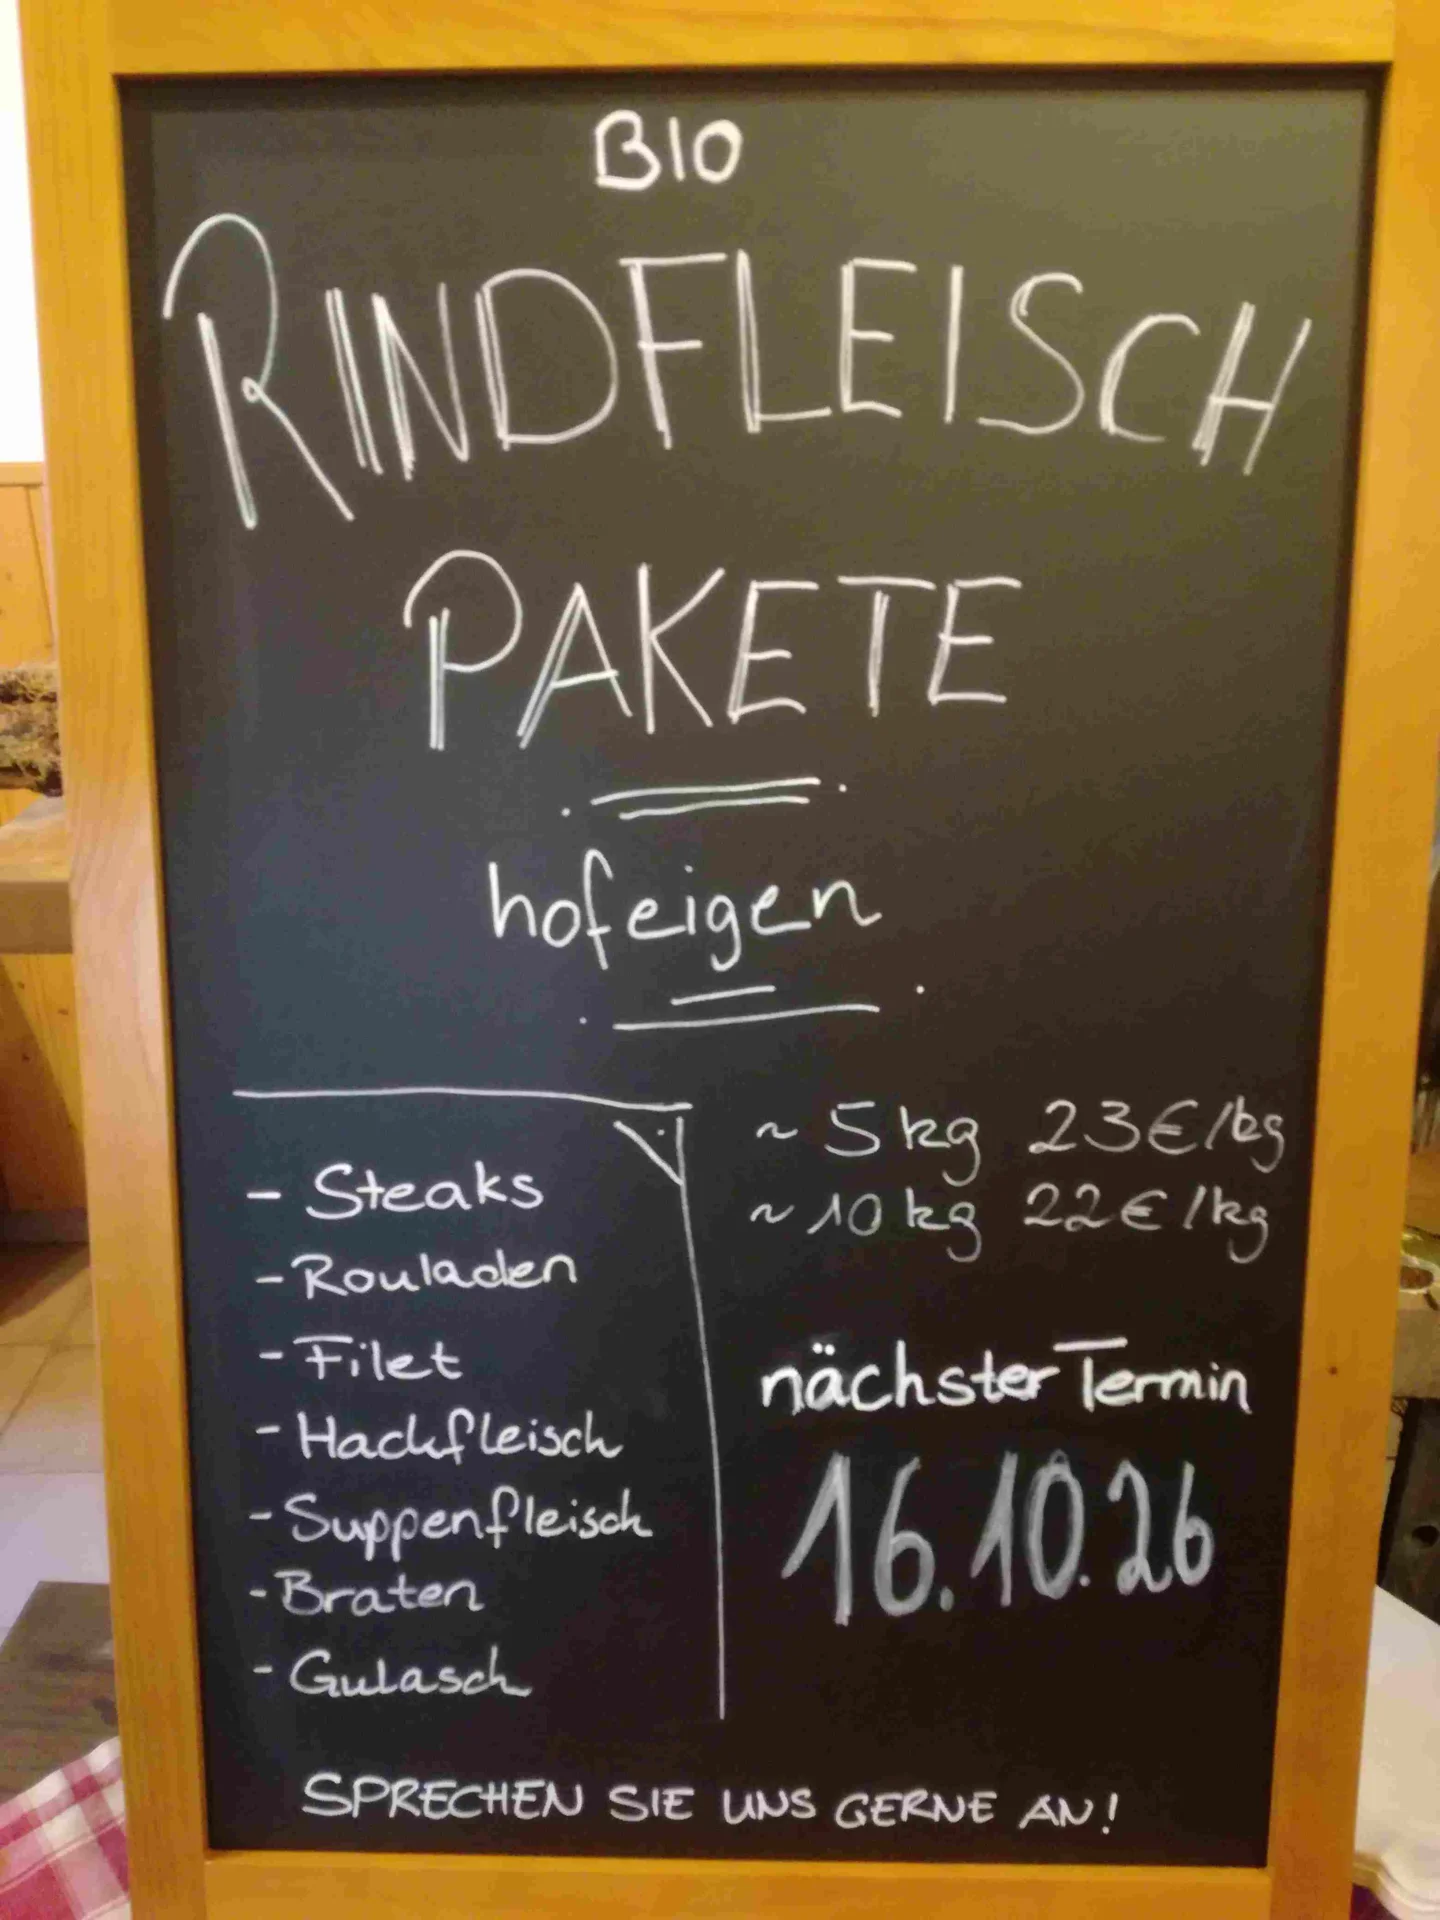 BIO
RINDFLEISCH
PAKETE
hofeigen
- Steaks
- Rouladen
- Filet
- Hackfleisch
- Suppenfleisch
- Braten
- Gulasch
~ 5 kg 23€/kg
~ 10 kg 22€/kg
nächster Termin
16.10.26
SPRECHEN SIE UNS GERNE AN!